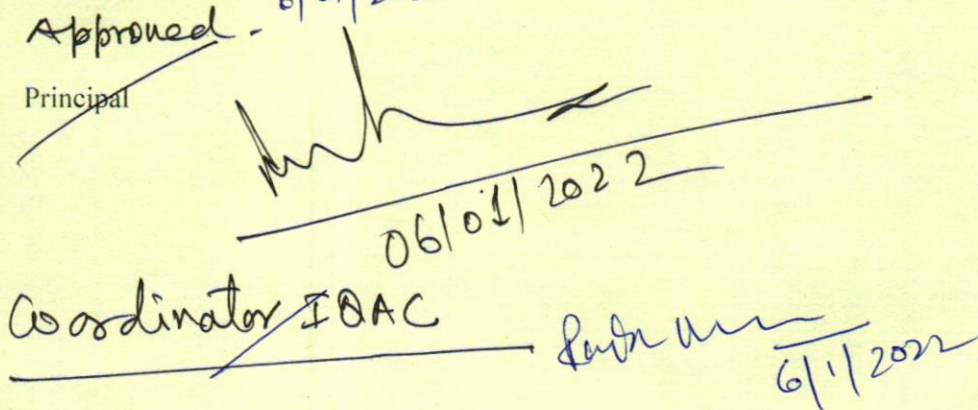 Approved.
Principal
06/01/2022
Coordinator IQAC
6/1/2022